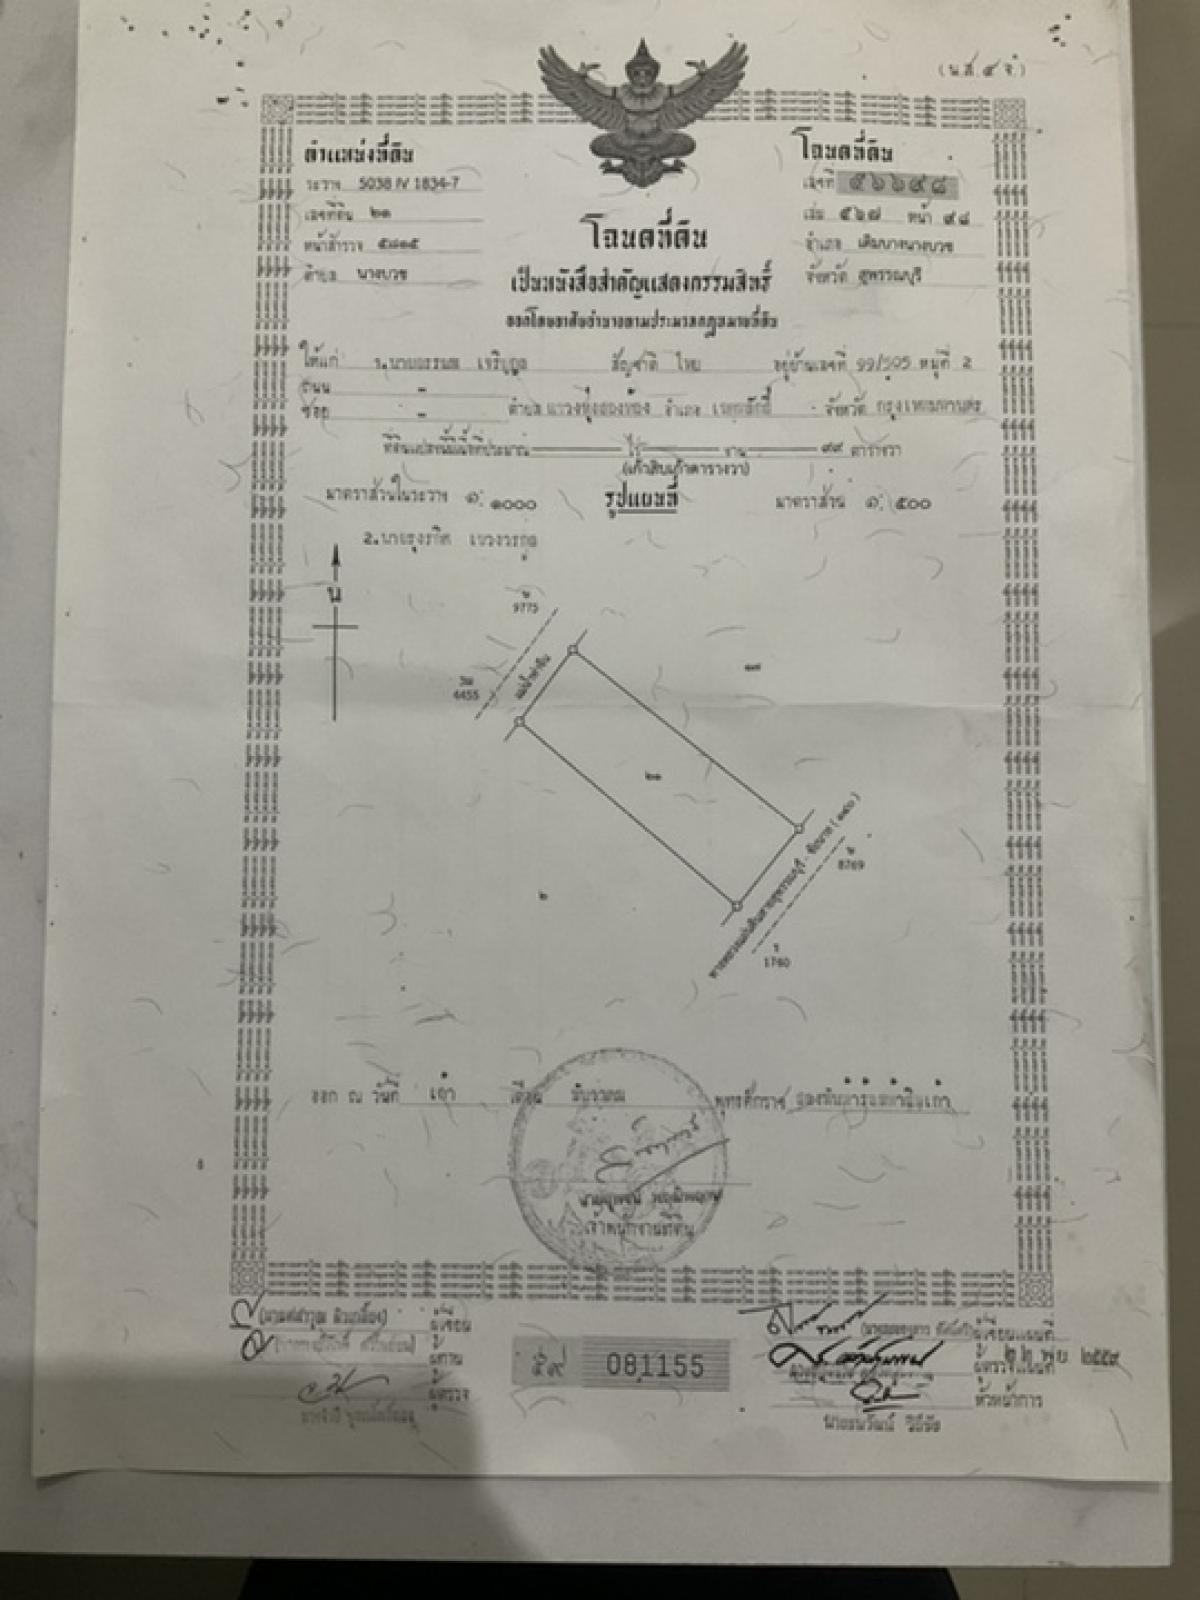 (น.ส.๔ จ.)
ตำแหน่งที่ดิน
โฉนดที่ดิน
ระวาง 5038 IV 1834-7
เลขที่ ๕๖๖๙๘
เลขที่ดิน ๒๑
เล่ม ๕๖๗ หน้า ๙๘
หน้าสำรวจ ๕๘๑๕
อำเภอ เดิมบางนางบวช
ตำบล นางบวช
จังหวัด สุพรรณบุรี
โฉนดที่ดิน
เป็นหนังสือสำคัญแสดงกรรมสิทธิ์
ออกโดยอาศัยอำนาจตามประมวลกฎหมายที่ดิน
ให้แก่ ๑.นาย สัญชาติ ไทย อยู่บ้านเลขที่ 99/505 หมู่ที่ 2
ถนน -
ซอย - ตำบล แขวงทุ่งสองห้อง อำเภอ เขตหลักสี่ จังหวัด กรุงเทพมหานคร
ที่ดินแปลงนี้มีเนื้อที่ประมาณ ไร่ งาน ๙๙ ตารางวา
(เก้าสิบเก้าตารางวา)
มาตราส่วนในระวาง ๑:๑๐๐๐
รูปแผนที่
มาตราส่วน ๑:๕๐๐
2.นาย
น
9775
4455
แม่น้ำท่าจีน
๑๗
๒๑
ทางหลวงแผ่นดินสายสุพรรณบุรี - ชัยนาท (๓๔๐)
8769
๒
1760
ออก ณ วันที่ เก้า เดือน ธันวาคม พุทธศักราช สองพันห้าร้อยห้าสิบเก้า
เจ้าพนักงานที่ดิน
ผู้เขียน
ผู้เขียนแผนที่
ผู้ทาน
ผู้ตรวจแผนที่
๒๒ พ.ย. ๒๕๕๙
ผู้ตรวจ
หัวหน้าการ
๕๙ 081155